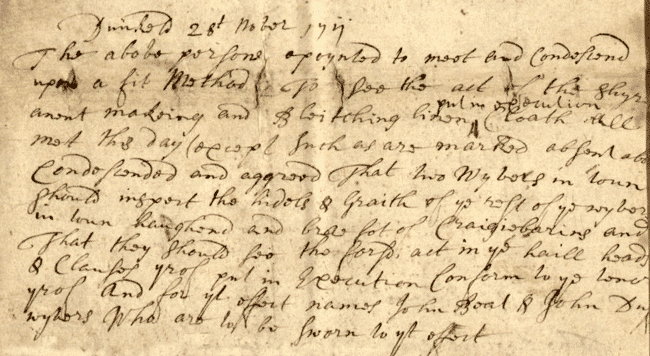 Dunkeld 28t Nober 1711
The above persons apoynted to meet and Condescend
upon a fit Method To See the act of the Shyr
put in execution
anent makeing and Bleitching linen Cloath All
met this day (except Such as are marked absent abo
Condescended and aggreed That two Wybers in toun
Should inspect the hidels & Graith of ye rest of ye wybers
in toun and brae fot of Craigiebarins and
That they Should See the forsd act in ye haill heads
& Clauses yrof put in Execution Conform to ye tenor
yrof And for yt effect names John Beal & John Du
wybers Who are to be Sworn to yt effect